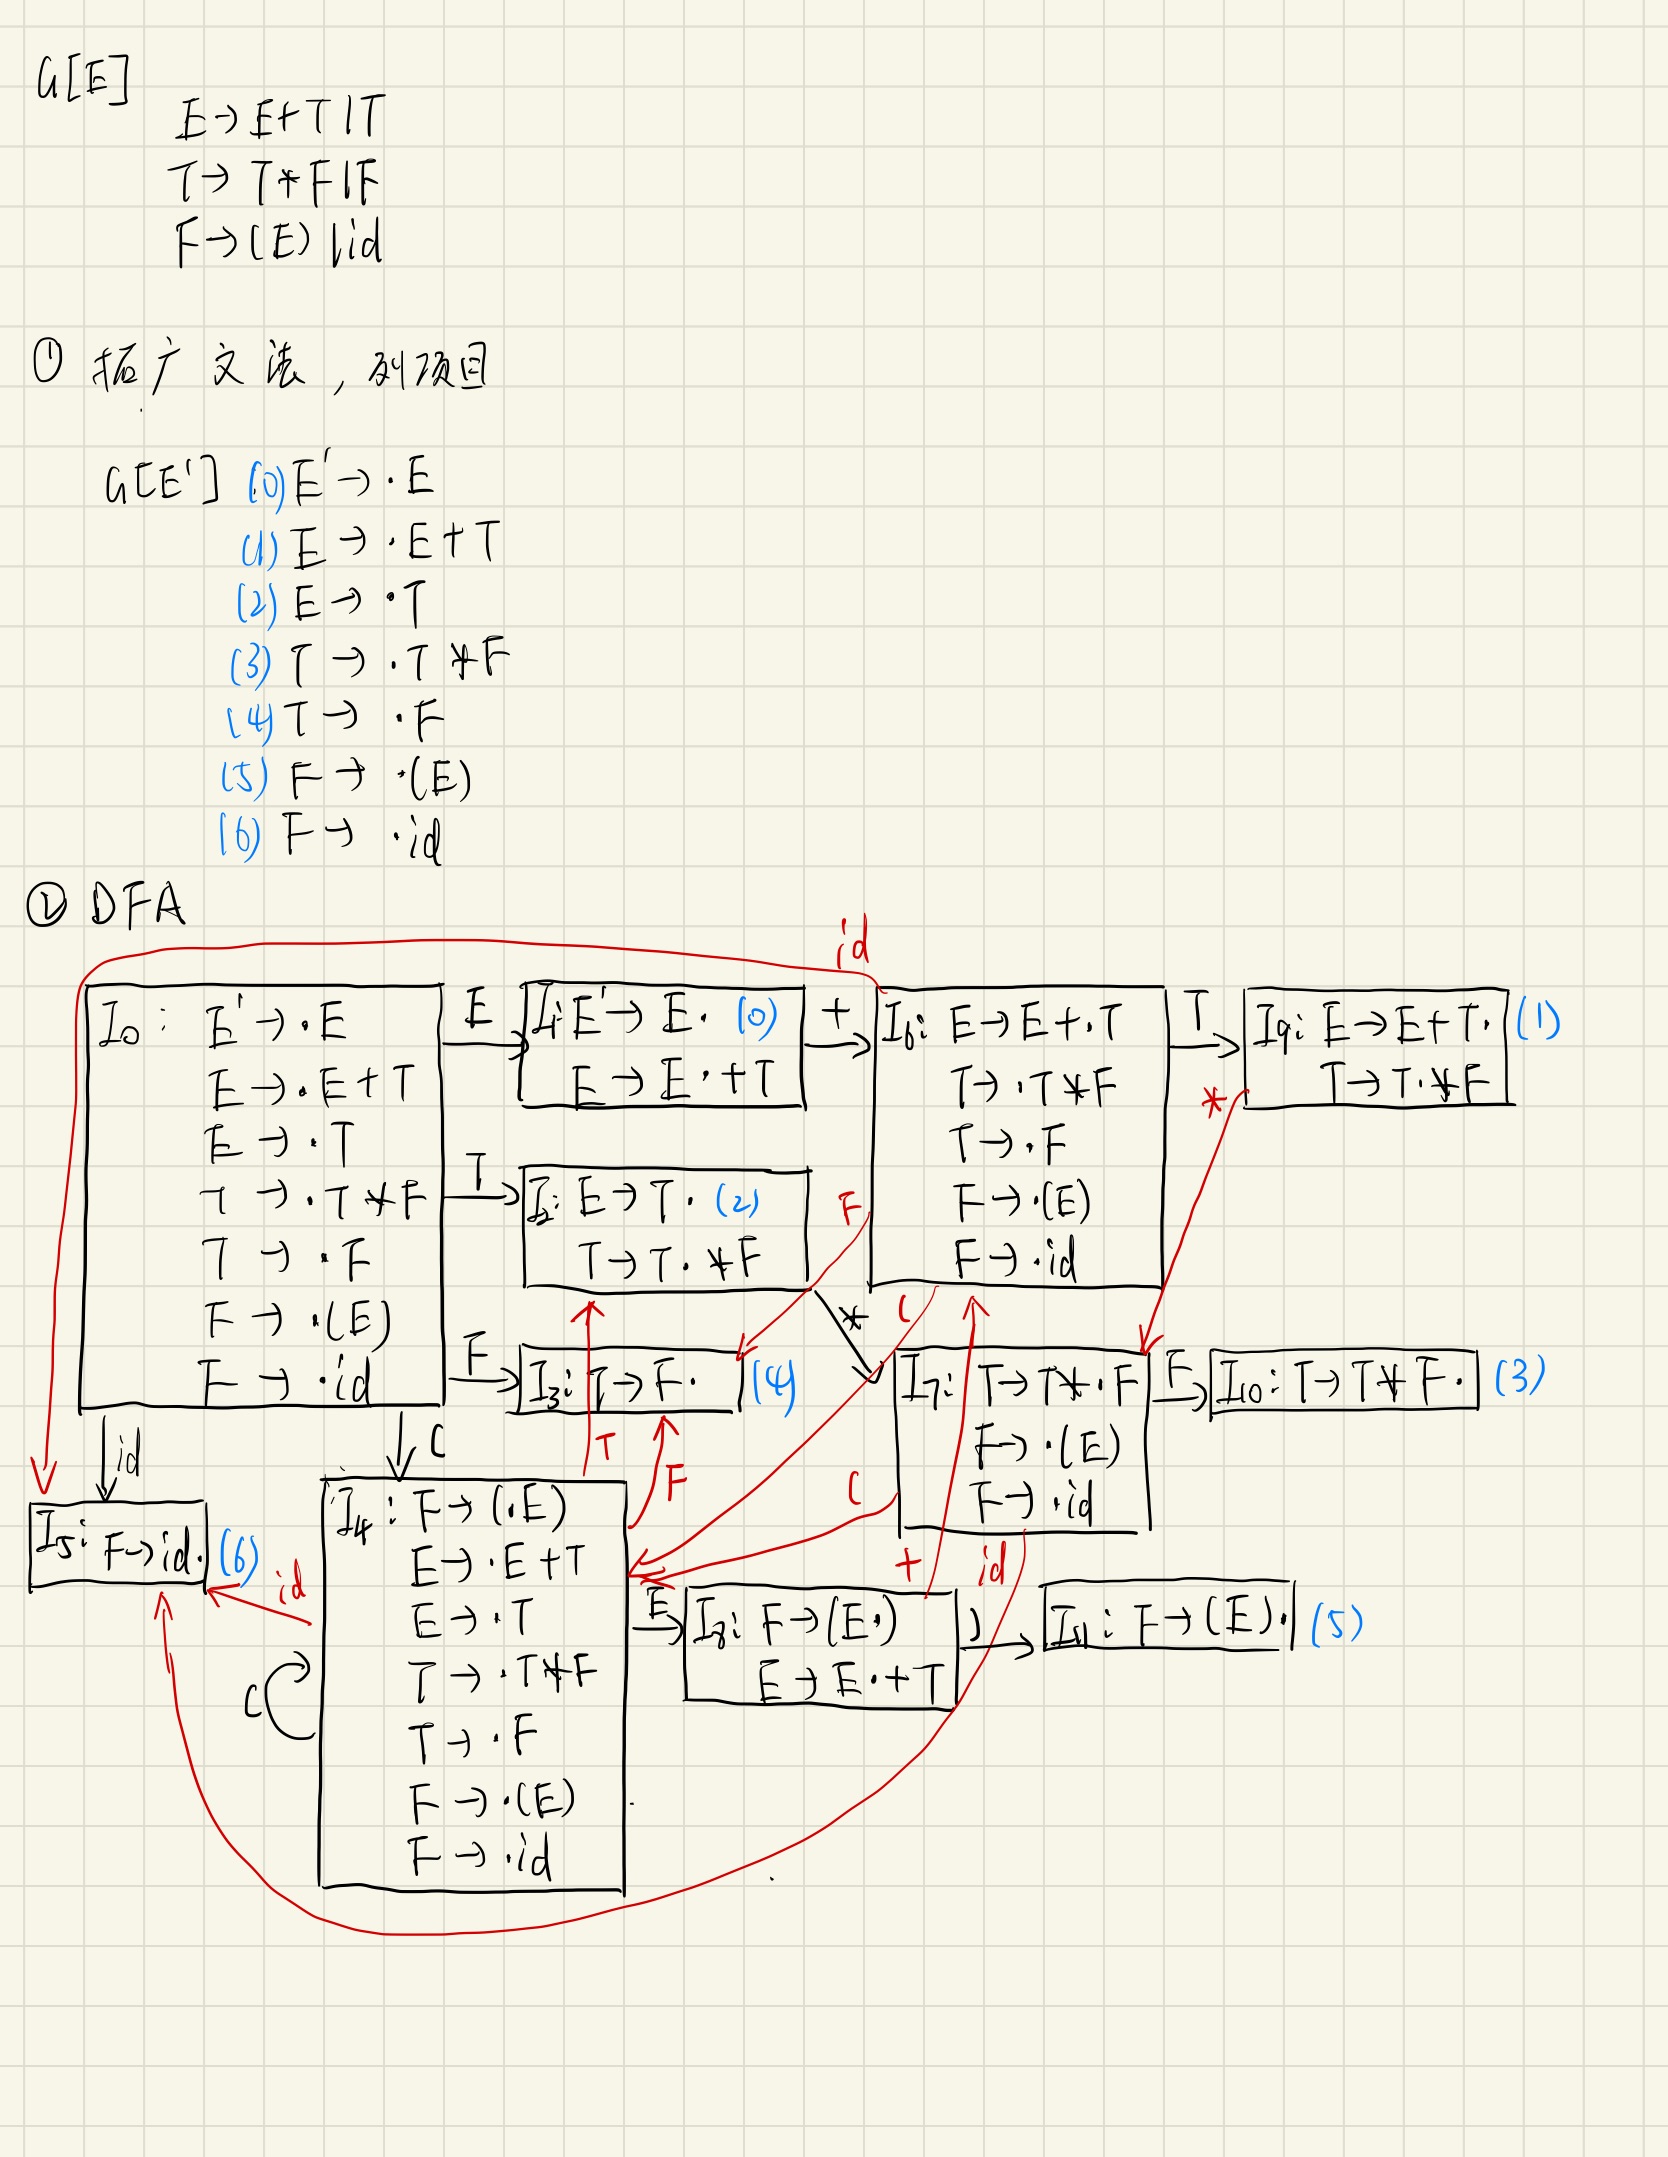 G[E]
E→E+T|T
T→T*F|F
F→(E)|id
① 拓广文法，列项目
G[E'] (0) E'→·E
(1) E→·E+T
(2) E→·T
(3) T→·T*F
(4) T→·F
(5) F→·(E)
(6) F→·id
② DFA
id
I0: E'→·E
E→·E+T
E→·T
T→·T*F
T→·F
F→·(E)
F→·id
E
I1: E'→E· (0)
E→E·+T
+
I6: E→E+·T
T→·T*F
T→·F
F→·(E)
F→·id
T
I9: E→E+T· (1)
T→T·*F
*
T
I2: E→T· (2)
T→T·*F
F
*
(
F
I3: T→F· (4)
I7: T→T*·F
F→·(E)
F→·id
F
I10: T→T*F· (3)
id
(
T
F
(
I5: F→id· (6)
id
I4: F→(·E)
E→·E+T
E→·T
T→·T*F
T→·F
F→·(E)
F→·id
(
+
id
E
I8: F→(E·)
E→E·+T
)
I11: F→(E)· (5)